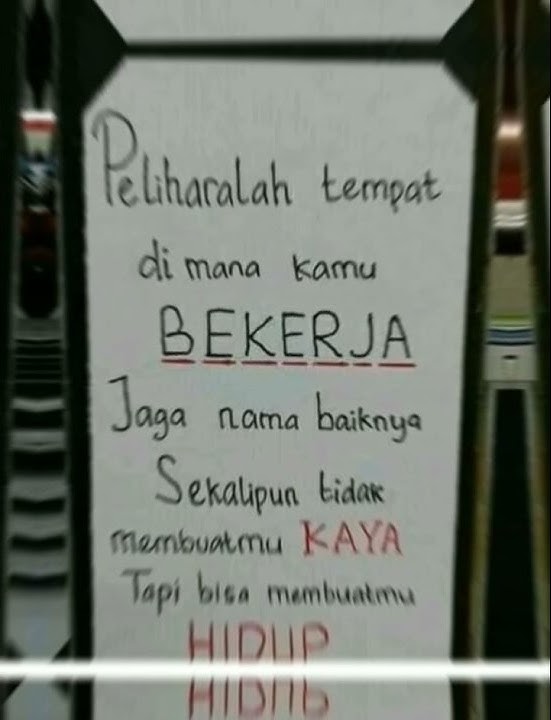 Peliharalah tempat
di mana kamu
BEKERJA
Jaga nama baiknya
Sekalipun tidak
membuatmu KAYA
Tapi bisa membuatmu
HIDUP